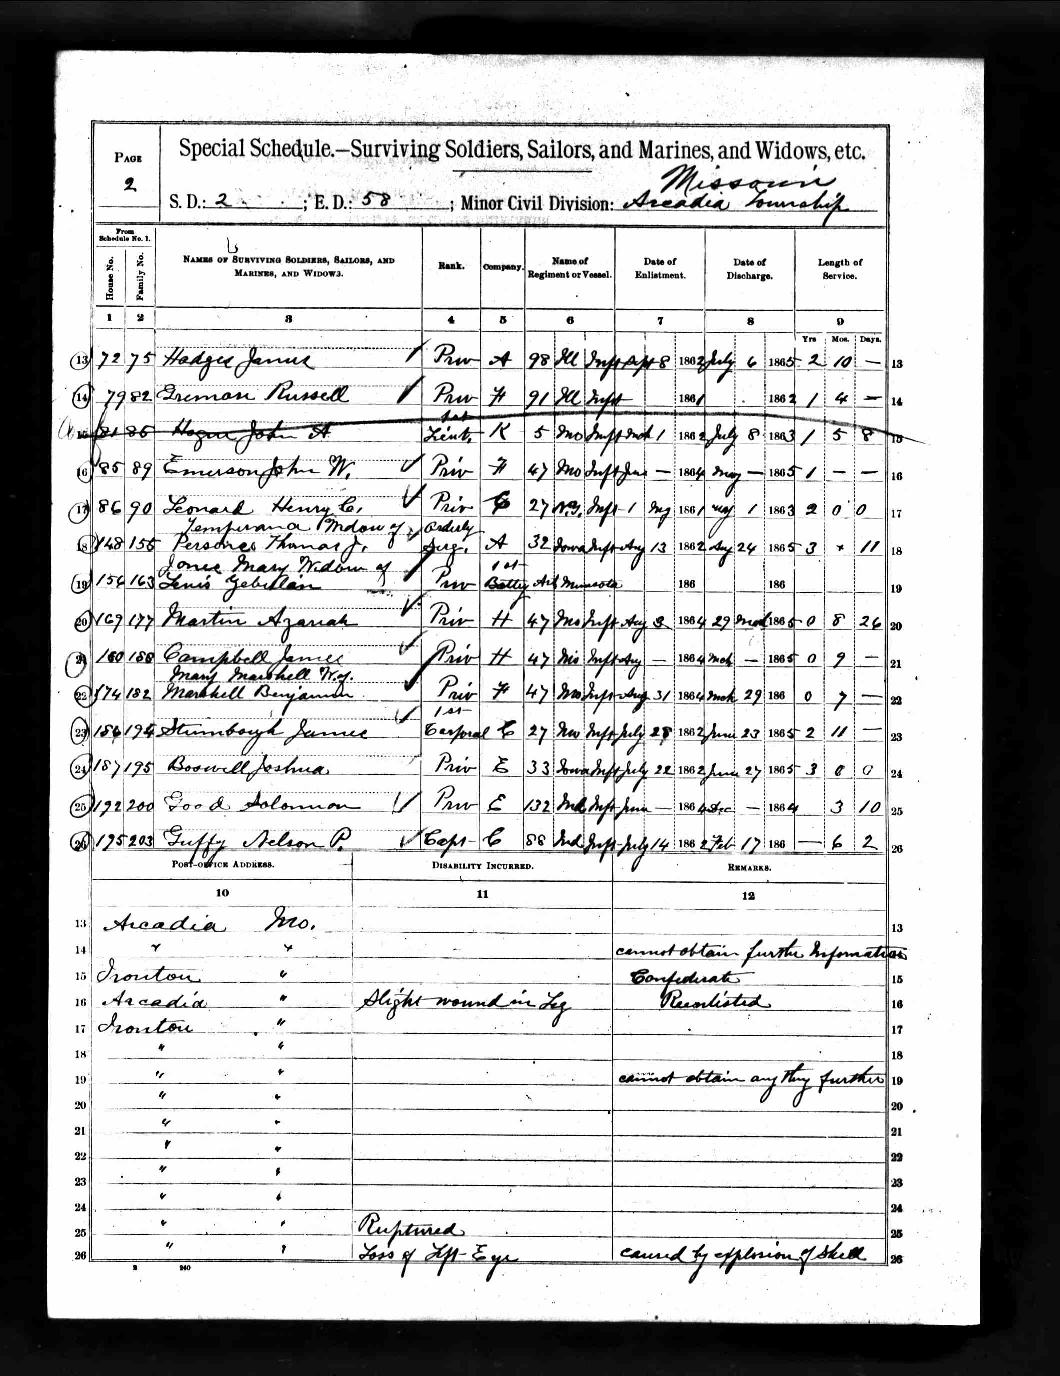 PAGE
2
Special Schedule.—Surviving Soldiers, Sailors, and Marines, and Widows, etc.
Missouri
S. D.: 2 ; E. D.: 58 ; Minor Civil Division: Arcadia Township
From Schedule No. 1.
House No.
Family No.
NAMES OF SURVIVING SOLDIERS, SAILORS, AND MARINES, AND WIDOWS.
Rank.
Company.
Name of Regiment or Vessel.
Date of Enlistment.
Date of Discharge.
Length of Service.
1 2 3 4 5 6 7 8 9
Yrs Mos. Days.
13 72 75 Hodges James Priv A 98 Ill Inft Sept 8 1862 July 6 1865 2 10 — 13
14 79 82 Russell Priv H 91 Ill Inft 1861 1862 1 4 — 14
1st
15 81 85 Hogue John A Lieut. K 5 Mo Inft Mch 1 1862 July 8 1863 1 5 8 15
16 85 89 Emerson John W. Priv H 47 Mo Inft — 1864 May — 1865 1 — — 16
17 86 90 Leonard Henry C. Priv 27 N.Y. Inft 1 My 1861 May 1 1863 2 0 0 17
Widow of Orderly
18 148 155 Persons Thomas J. Serg. A 32 Iowa Inft Aug 13 1862 Aug 24 1865 3 11 18
Jones Mary Widow of 1st
19 156 163 Lewis Priv Batty Art 186 186 19
20 169 177 Martin Azariah Priv H 47 Mo Inft Aug 1864 29 Mch 1865 0 8 26 20
21 180 188 Campbell James Priv H 47 Mo Inft Aug — 1864 Mch — 1865 0 9 — 21
Mary Marshell W. of
22 174 182 Marshell Benjamin Priv H 47 Mo Inft Aug 31 1864 Mch 29 186 0 7 — 22
1st
23 186 194 Stumbough James Corporal C 27 Inft July 28 1862 June 23 1865 2 11 — 23
24 187 195 Boswell Joshua Priv E 33 Iowa Inft July 22 1862 June 27 1865 3 0 0 24
25 192 200 Good Solomon Priv E 132 Ind Inft June — 1864 Dec — 1864 3 10 25
26 195 203 Guffy Nelson P. Capt C 88 Ind Inft July 14 1862 Feb 17 186 — 6 2 26
POST-OFFICE ADDRESS. DISABILITY INCURRED. REMARKS.
10 11 12
13 Arcadia Mo. 13
14 " " cannot obtain further Information
15 Ironton " Confederate 15
16 Arcadia " Slight wound in Leg Reenlisted 16
17 Ironton " 17
18 " " 18
19 " " cannot obtain any thing further 19
20 " " 20
21 " " 21
22 " " 22
23 " " 23
24 " " 24
25 " " Ruptured 25
26 " " Loss of Left Eye caused by explosion of Shell 26
2 240